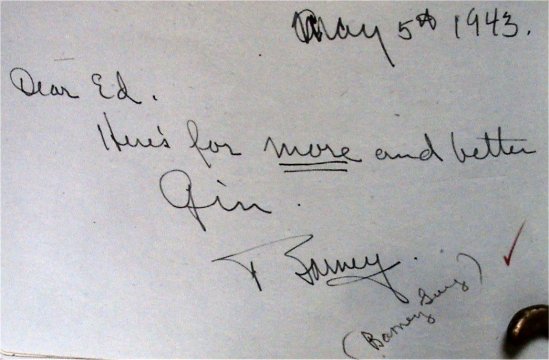 May 5th 1943.
Dear Ed.
Here's for more and better
Gin.
Barney.
(Barney